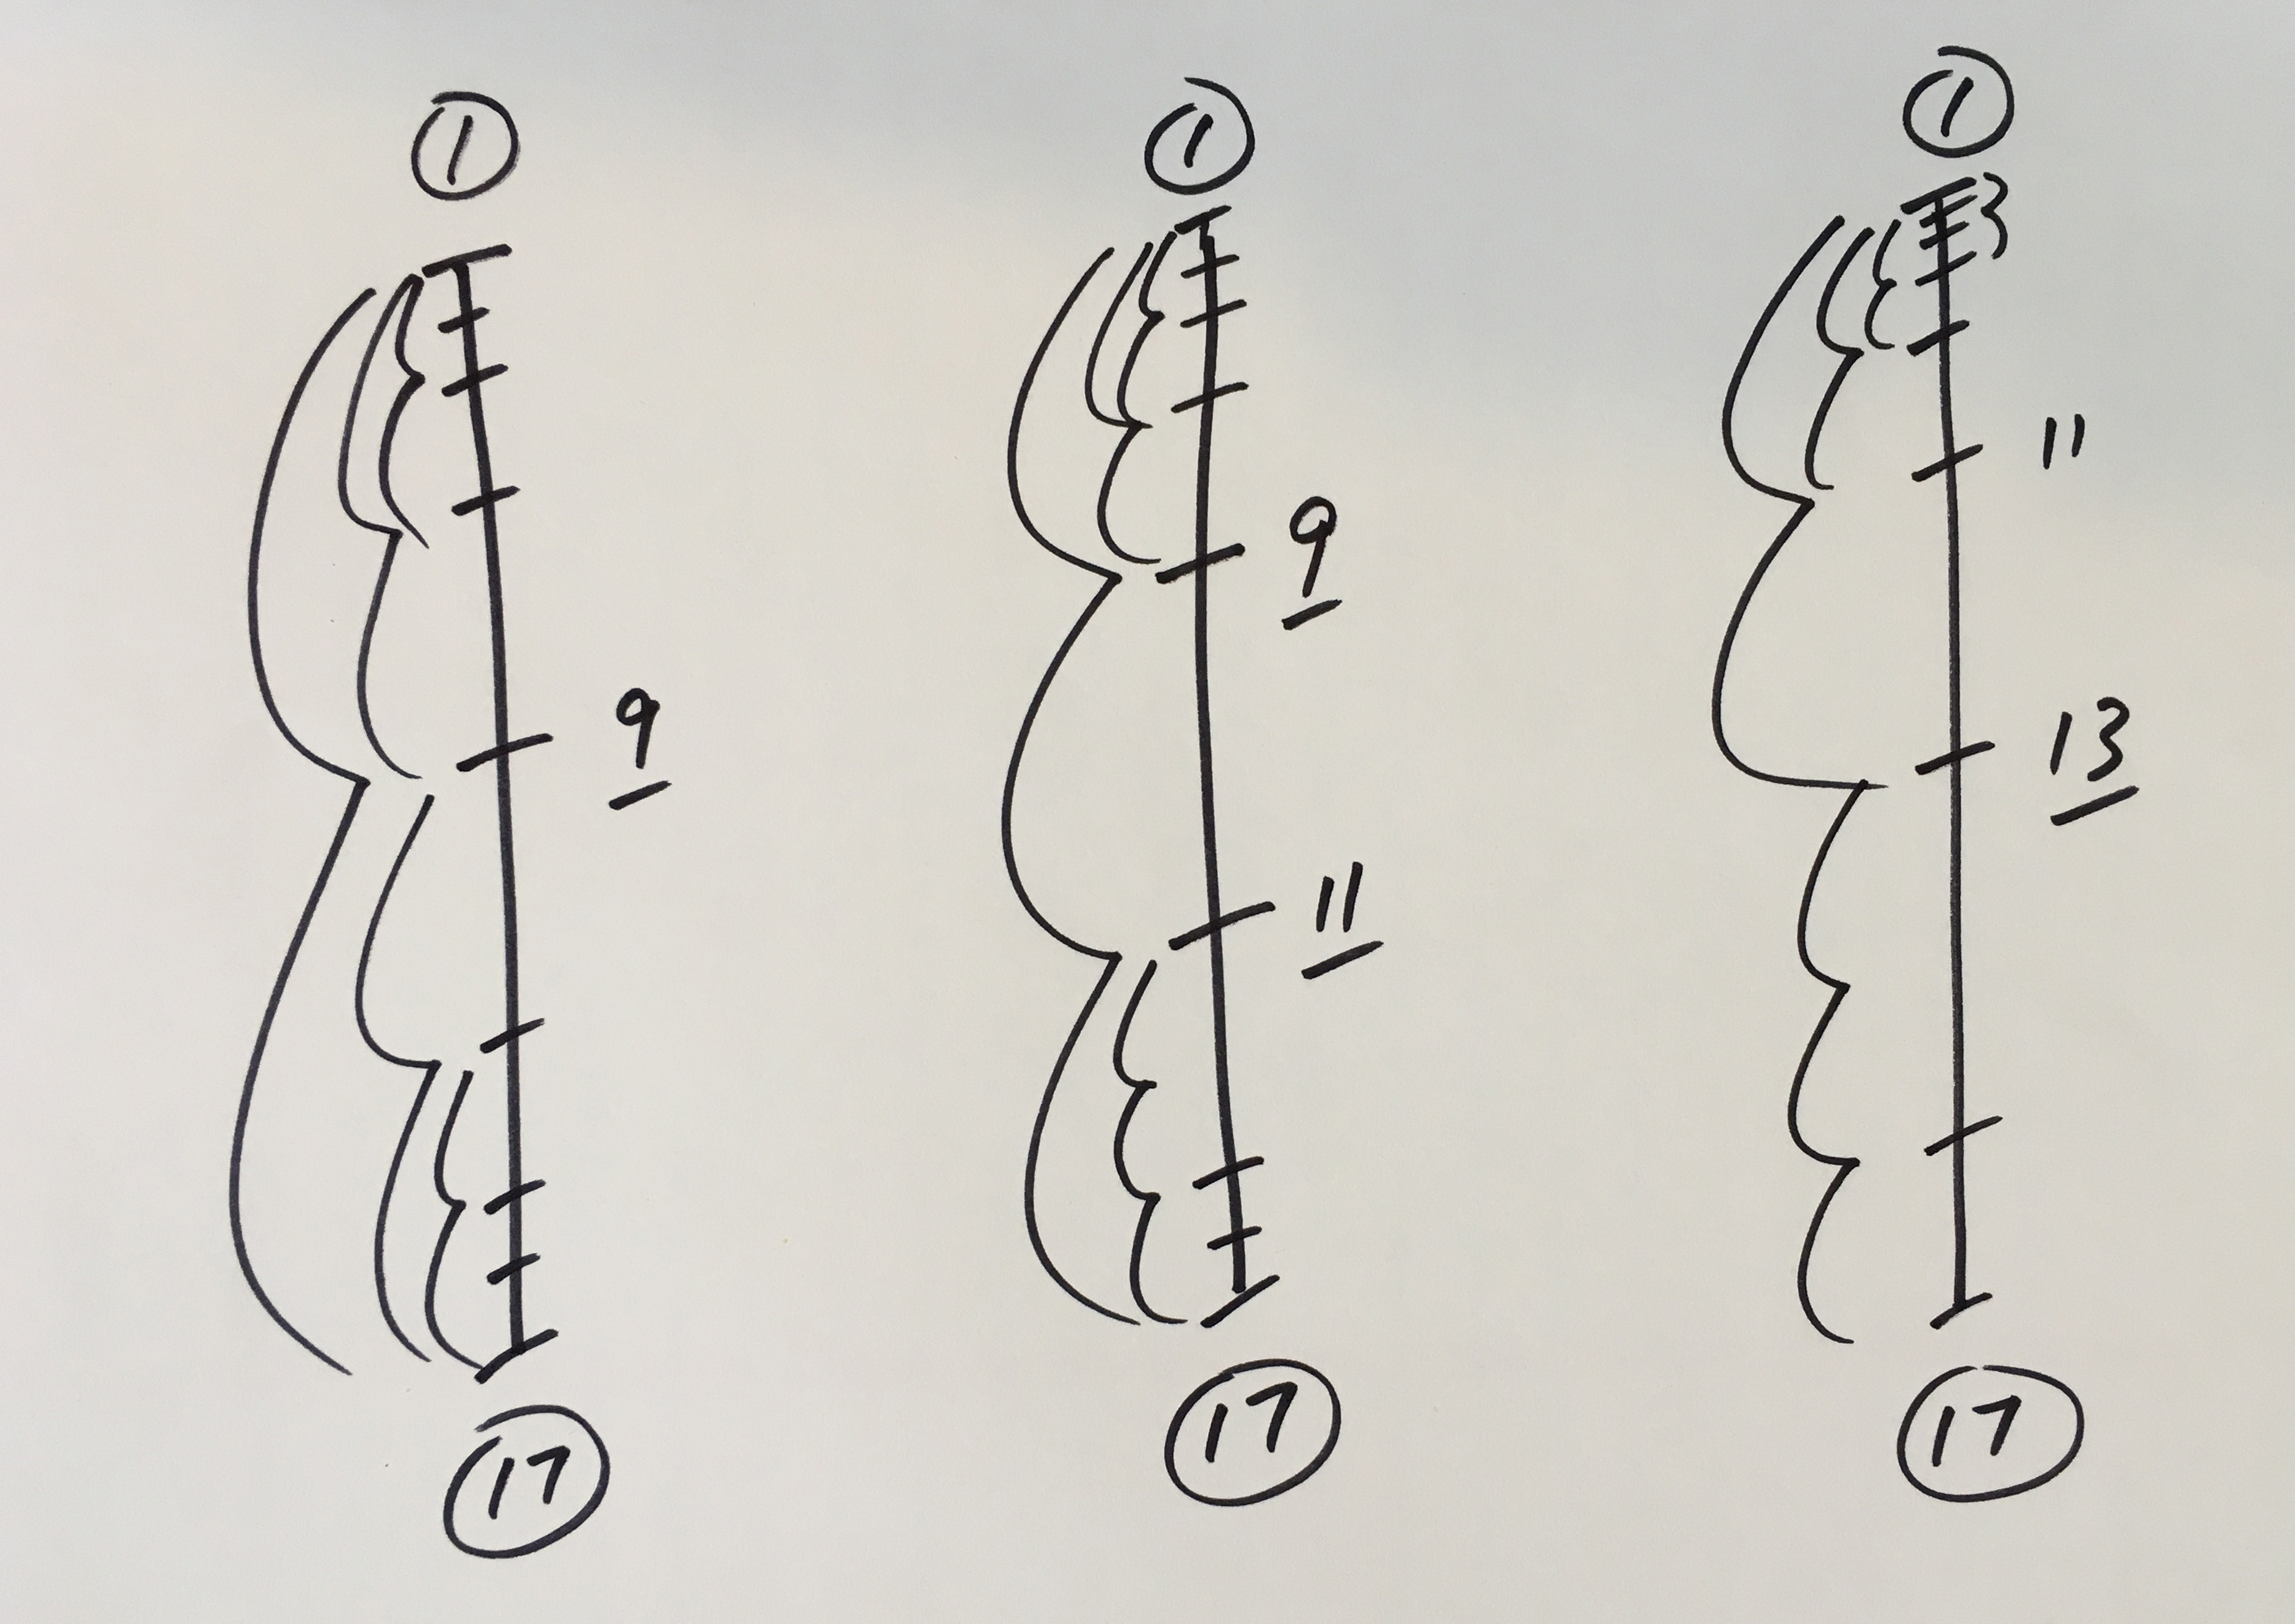 1
9
17
1
9
11
17
1
11
13
17